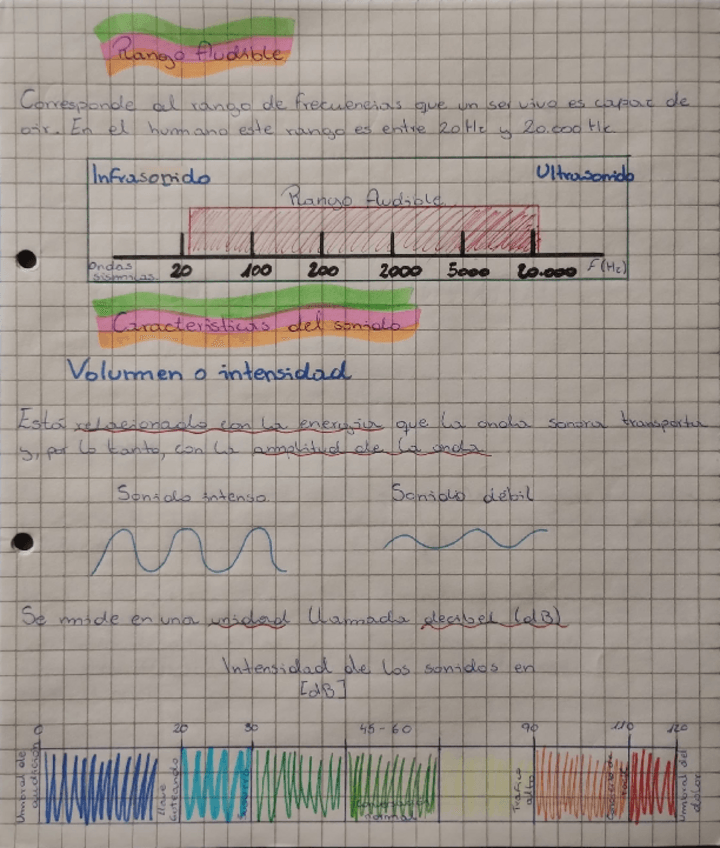 Rango Audible
Corresponde al rango de frecuencias que un ser vivo es capaz de
oir. En el humano este rango es entre 20 Hz y 20.000 Hz
Infrasonido
Ultrasonido
Rango Audible
Ondas
sísmicas
20 100 200 2000 5000 20.000 F(Hz)
Características del sonido
Volumen o intensidad
Está relacionado con la energía que la onda sonora transporta
y, por lo tanto, con la amplitud de la onda
Sonido intenso.
Sonido débil
Se mide en una unidad llamada decibel (dB)
Intensidad de los sonidos en
[dB]
0 20 30 45-60 90 110 120
Umbral de
audición
llave
goteando
Susurro
Conversación
normal
Tráfico
alto
Concierto de
rock
Umbral del
dolor